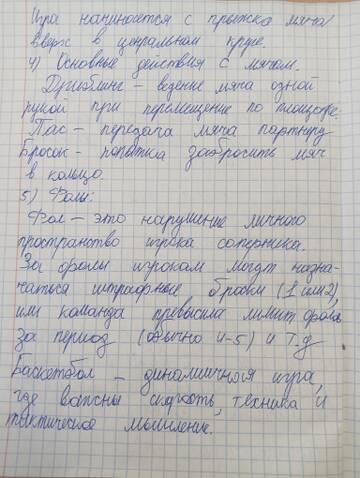 Игра начиногется с прыжка мяча
вверх в ценральном круге.
4) Основные действия с мячом.
Дриблинг – ведение мяча одной
рукой при перемещение по площадке.
Пас – передача мяча партнёру
Бросок – попытка забросить мяч
в кольцо.
5) Фолы:
Фол – это нарушение личного
пространство игрока соперника.
За фолы игрокам могут назна-
чаться штрафные броски (1 или 2),
или команда превысила лимит фолов
за период (обычно 4-5) и т.д
Баскетбол – динамичная игра,
где важны скорость, техника и
тактическое мышление.